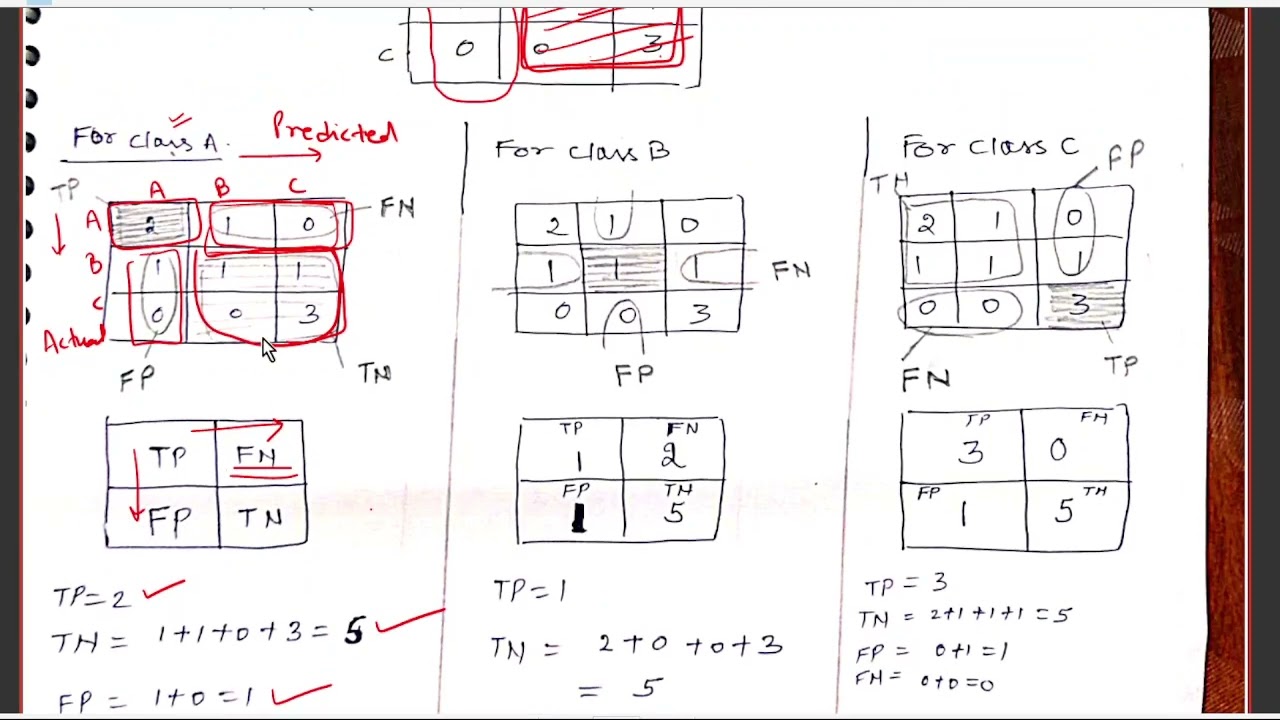 C 0 0 3
For class A. Predicted
TP
A B C
A 2 1 0 FN
B 1 1 1
C 0 0 3
Actual
FP TN
TP FN
FP TN
TP = 2
TN = 1+1+0+3 = 5
FP = 1+0 = 1
For class B
2 1 0
1 1 1 FN
0 0 3
FP
TP FN
1 2
FP TN
1 5
TP = 1
TN = 2+0+0+3
= 5
For class C
TN FP
2 1 0
1 1 1
0 0 3
FN TP
TP FN
3 0
FP TN
1 5
TP = 3
TN = 2+1+1+1 = 5
FP = 0+1 = 1
FN = 0+0 = 0